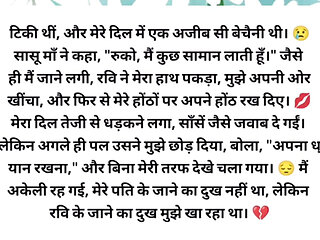 टिकी थीं, और मेरे दिल में एक अजीब सी बेचैनी थी। 😢
सासू माँ ने कहा, "रुको, मैं कुछ सामान लाती हूँ।" जैसे
ही मैं जाने लगी, रवि ने मेरा हाथ पकड़ा, मुझे अपनी ओर
खींचा, और फिर से मेरे होंठों पर अपने होंठ रख दिए। 💋
मेरा दिल तेजी से धड़कने लगा, साँसें जैसे जवाब दे गईं।
लेकिन अगले ही पल उसने मुझे छोड़ दिया, बोला, "अपना ध्
यान रखना," और बिना मेरी तरफ देखे चला गया। 😔 मैं
अकेली रह गई, मेरे पति के जाने का दुख नहीं था, लेकिन
रवि के जाने का दुख मुझे खा रहा था। 💔